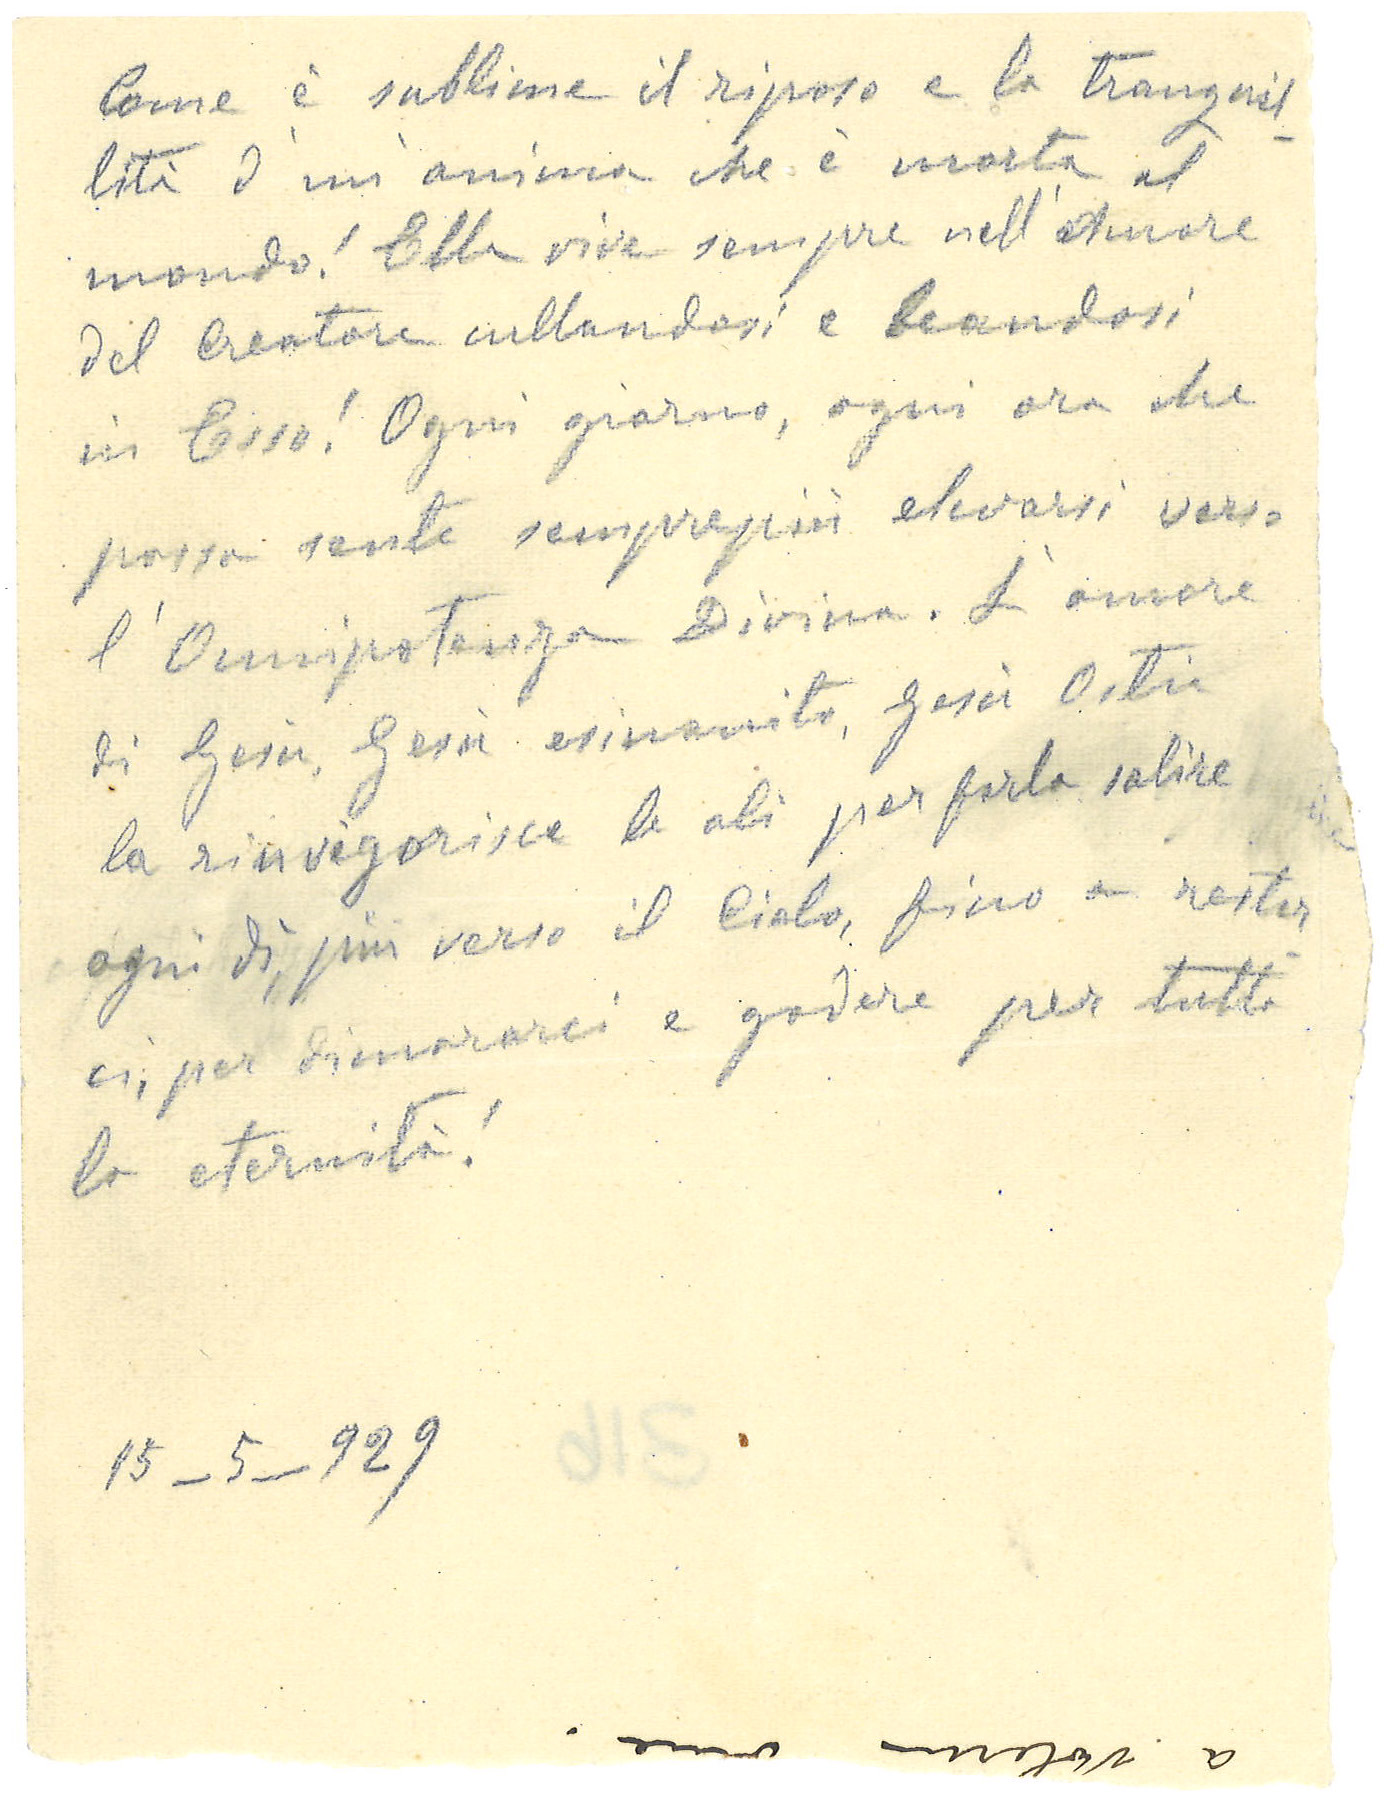 Come è sublime il riposo e la tranquil-
lità d'un'anima che è morta al
mondo! Ella vive sempre nell'Amore
del Creatore cullandosi e beandosi
in Esso! Ogni giorno, ogni ora che
passa sente semprepiù elevarsi verso
l'Omnipotenza Divina. L'amore
di Gesù, Gesù esinanito, Gesù Ostia
la rinvigorisce le ali per farla salire
ogni dì, più verso il Cielo, fino a restar
ci, per dimorarci e godere per tutta
la eternità!
15-5-929
316
a